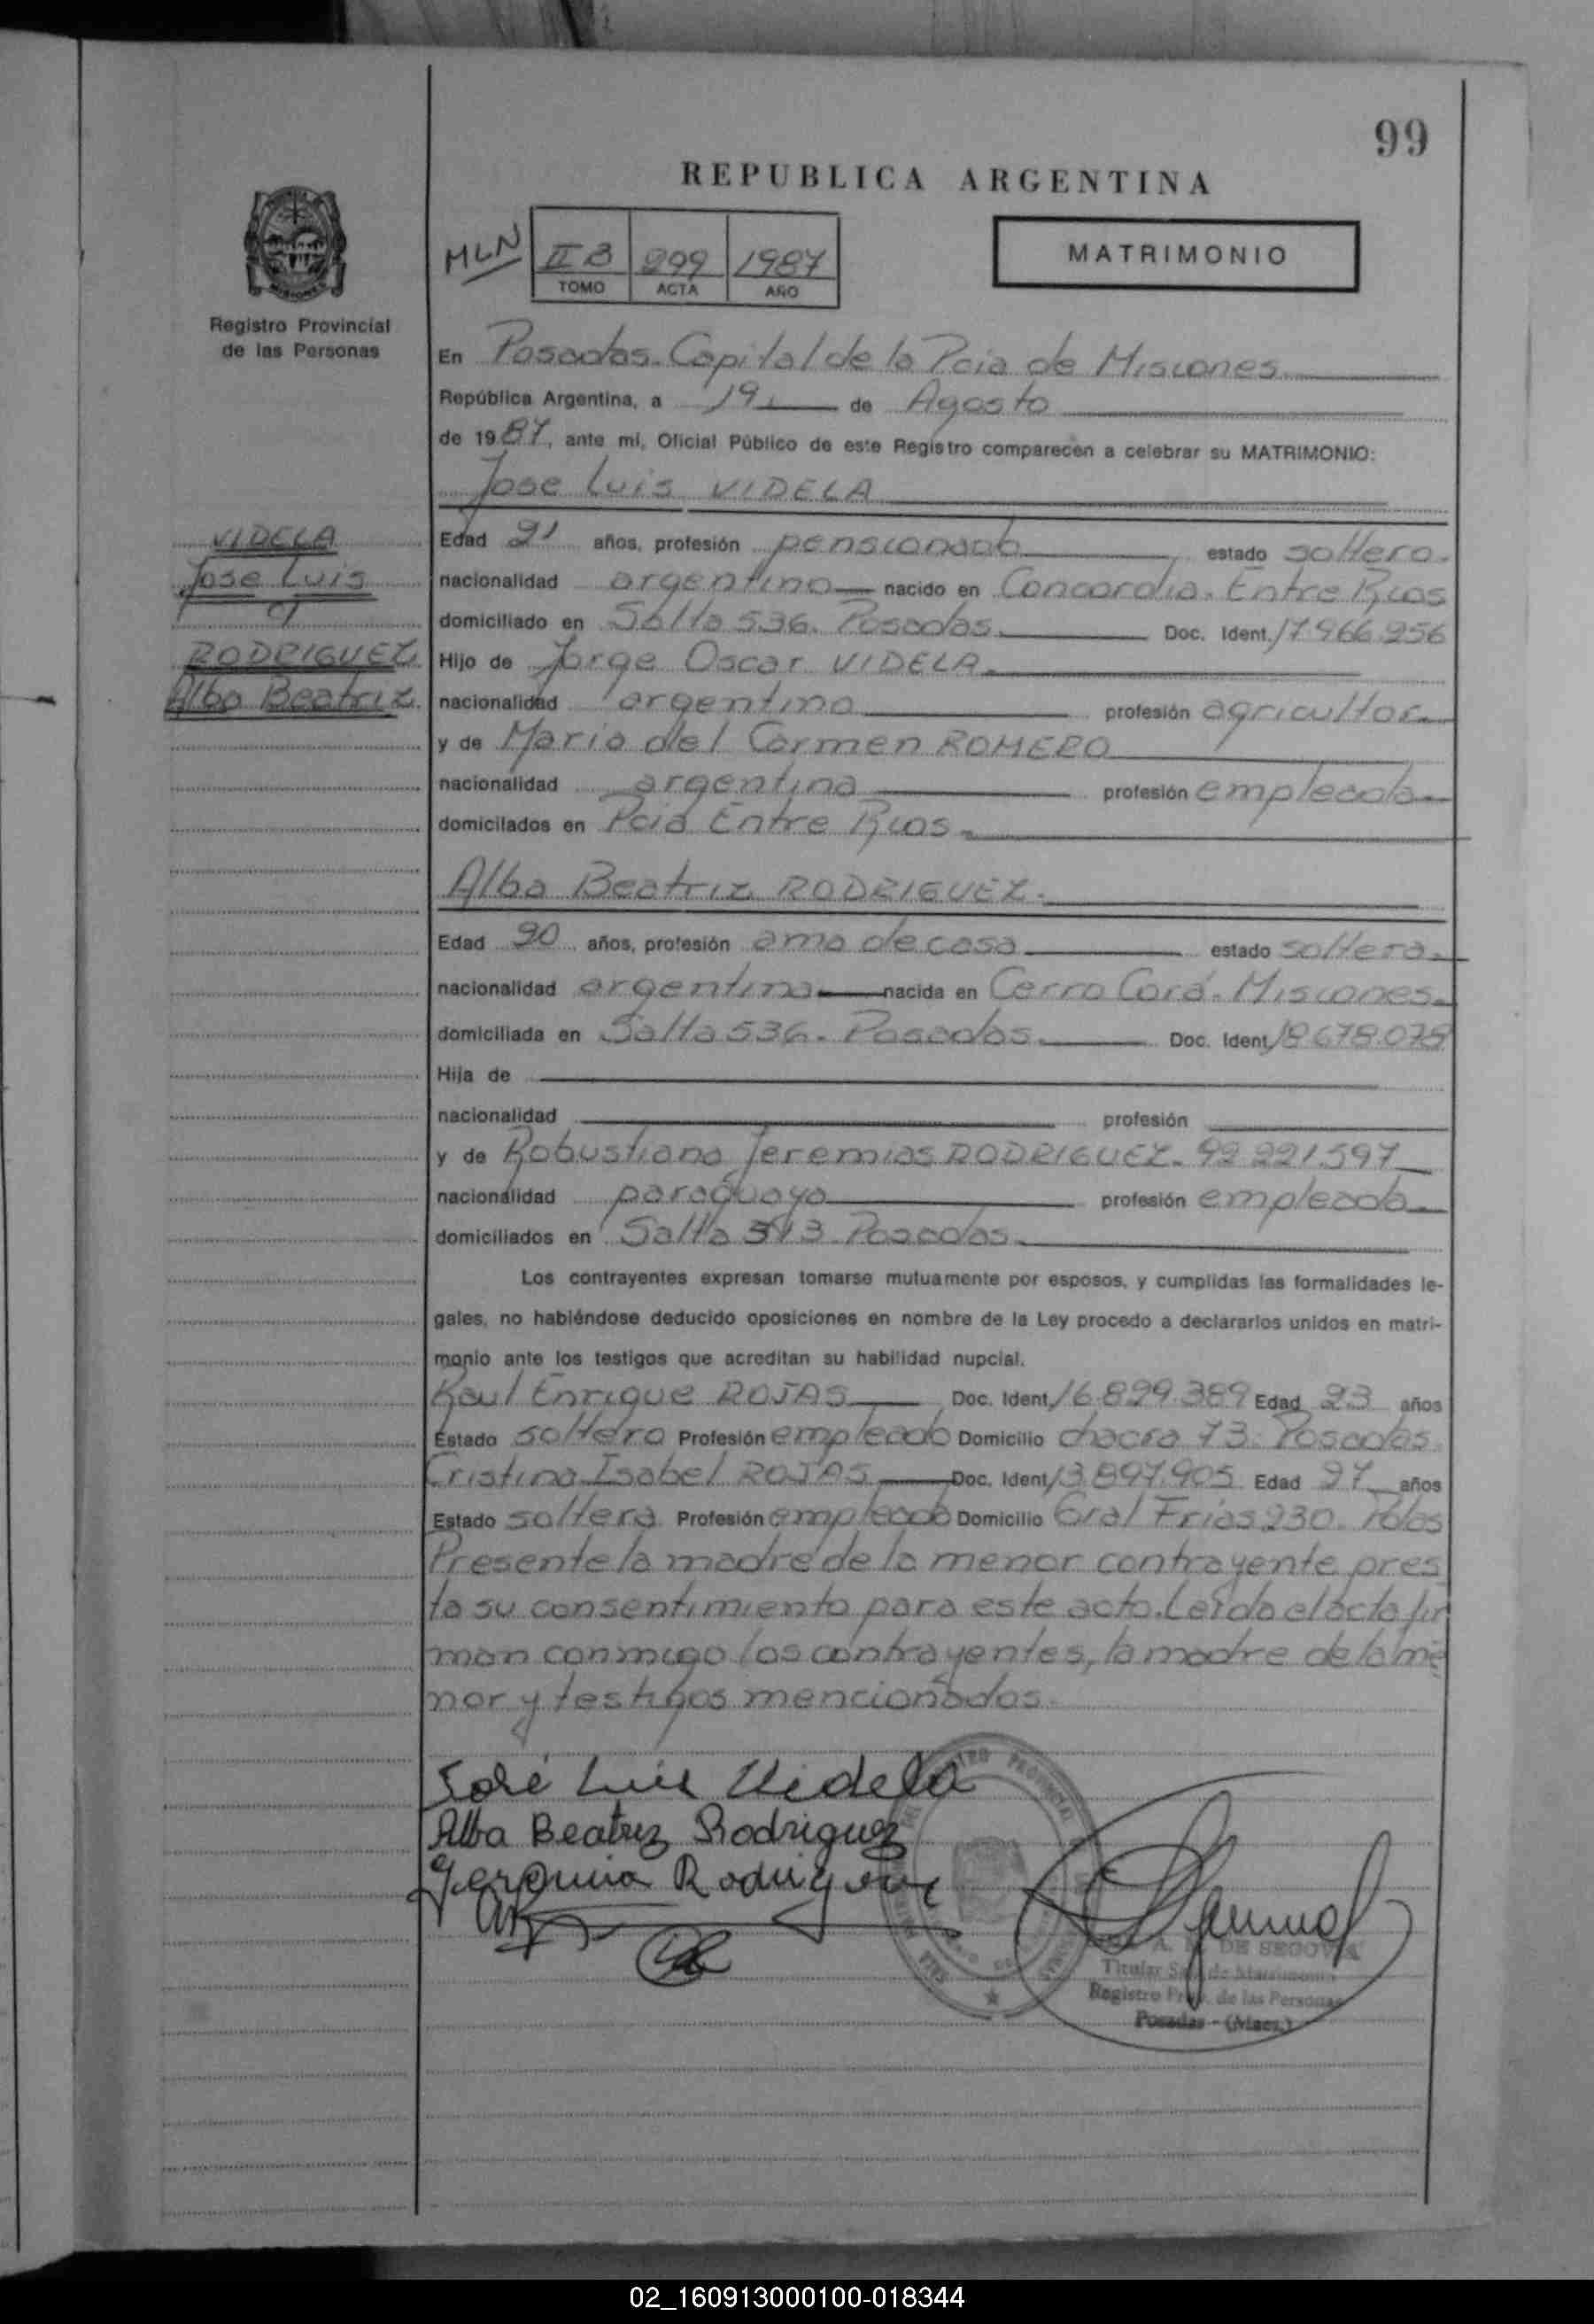 99
REPUBLICA ARGENTINA
MLN
II B 299 1987
TOMO ACTA AÑO
MATRIMONIO
Registro Provincial
de las Personas
En Posadas. Capital de la Pcia de Misiones
República Argentina, a 19 de Agosto
de 1987, ante mi, Oficial Público de este Registro comparecen a celebrar su MATRIMONIO:
Jose Luis VIDELA
VIDELA
Jose Luis
y
RODRIGUEZ
Alba Beatriz
Edad 21 años, profesión pensionado estado soltero.
nacionalidad argentino nacido en Concordia. Entre Rios
domiciliado en Salta 536. Posadas. Doc. Ident. 17.966.256
Hijo de Jorge Oscar VIDELA.
nacionalidad argentino profesión agricultor
y de Maria del Carmen ROMERO
nacionalidad argentina profesión empleada
domicilados en Pcia Entre Rios.
Alba Beatriz RODRIGUEZ.
Edad 20 años, profesión ama de casa estado soltera.
nacionalidad argentina nacida en Cerro Corá. Misiones.
domiciliada en Salta 536. Posadas. Doc. Ident. 18.678.078
Hija de
nacionalidad profesión
y de Robustiana Jeremias RODRIGUEZ. 92.221.597
nacionalidad paraguaya profesión empleada
domiciliados en Salta 513. Posadas.
Los contrayentes expresan tomarse mutuamente por esposos, y cumplidas las formalidades le-
gales, no habiéndose deducido oposiciones en nombre de la Ley procedo a declararlos unidos en matri-
monio ante los testigos que acreditan su habilidad nupcial.
Raul Enrique ROJAS Doc. Ident. 16.829.389 Edad 23 años
Estado soltero Profesión empleado Domicilio chacra 73. Posadas.
Cristina Isabel ROJAS Doc. Ident. 13.897.905 Edad 27 años
Estado soltera Profesión empleada Domicilio Gral Frias 230. Pdas
Presente la madre de la menor contrayente pres
ta su consentimiento para este acto. Leida el acta fir
man conmigo los contrayentes, la madre de la me
nor y testigos mencionados.
José Luis Videla
Alba Beatriz Rodriguez
Rodriguez
DE SEGOVIA
Titular Sec. de Matrimonio
Registro Prov. de las Personas
Posadas - (Mnes.)
02_160913000100-018344